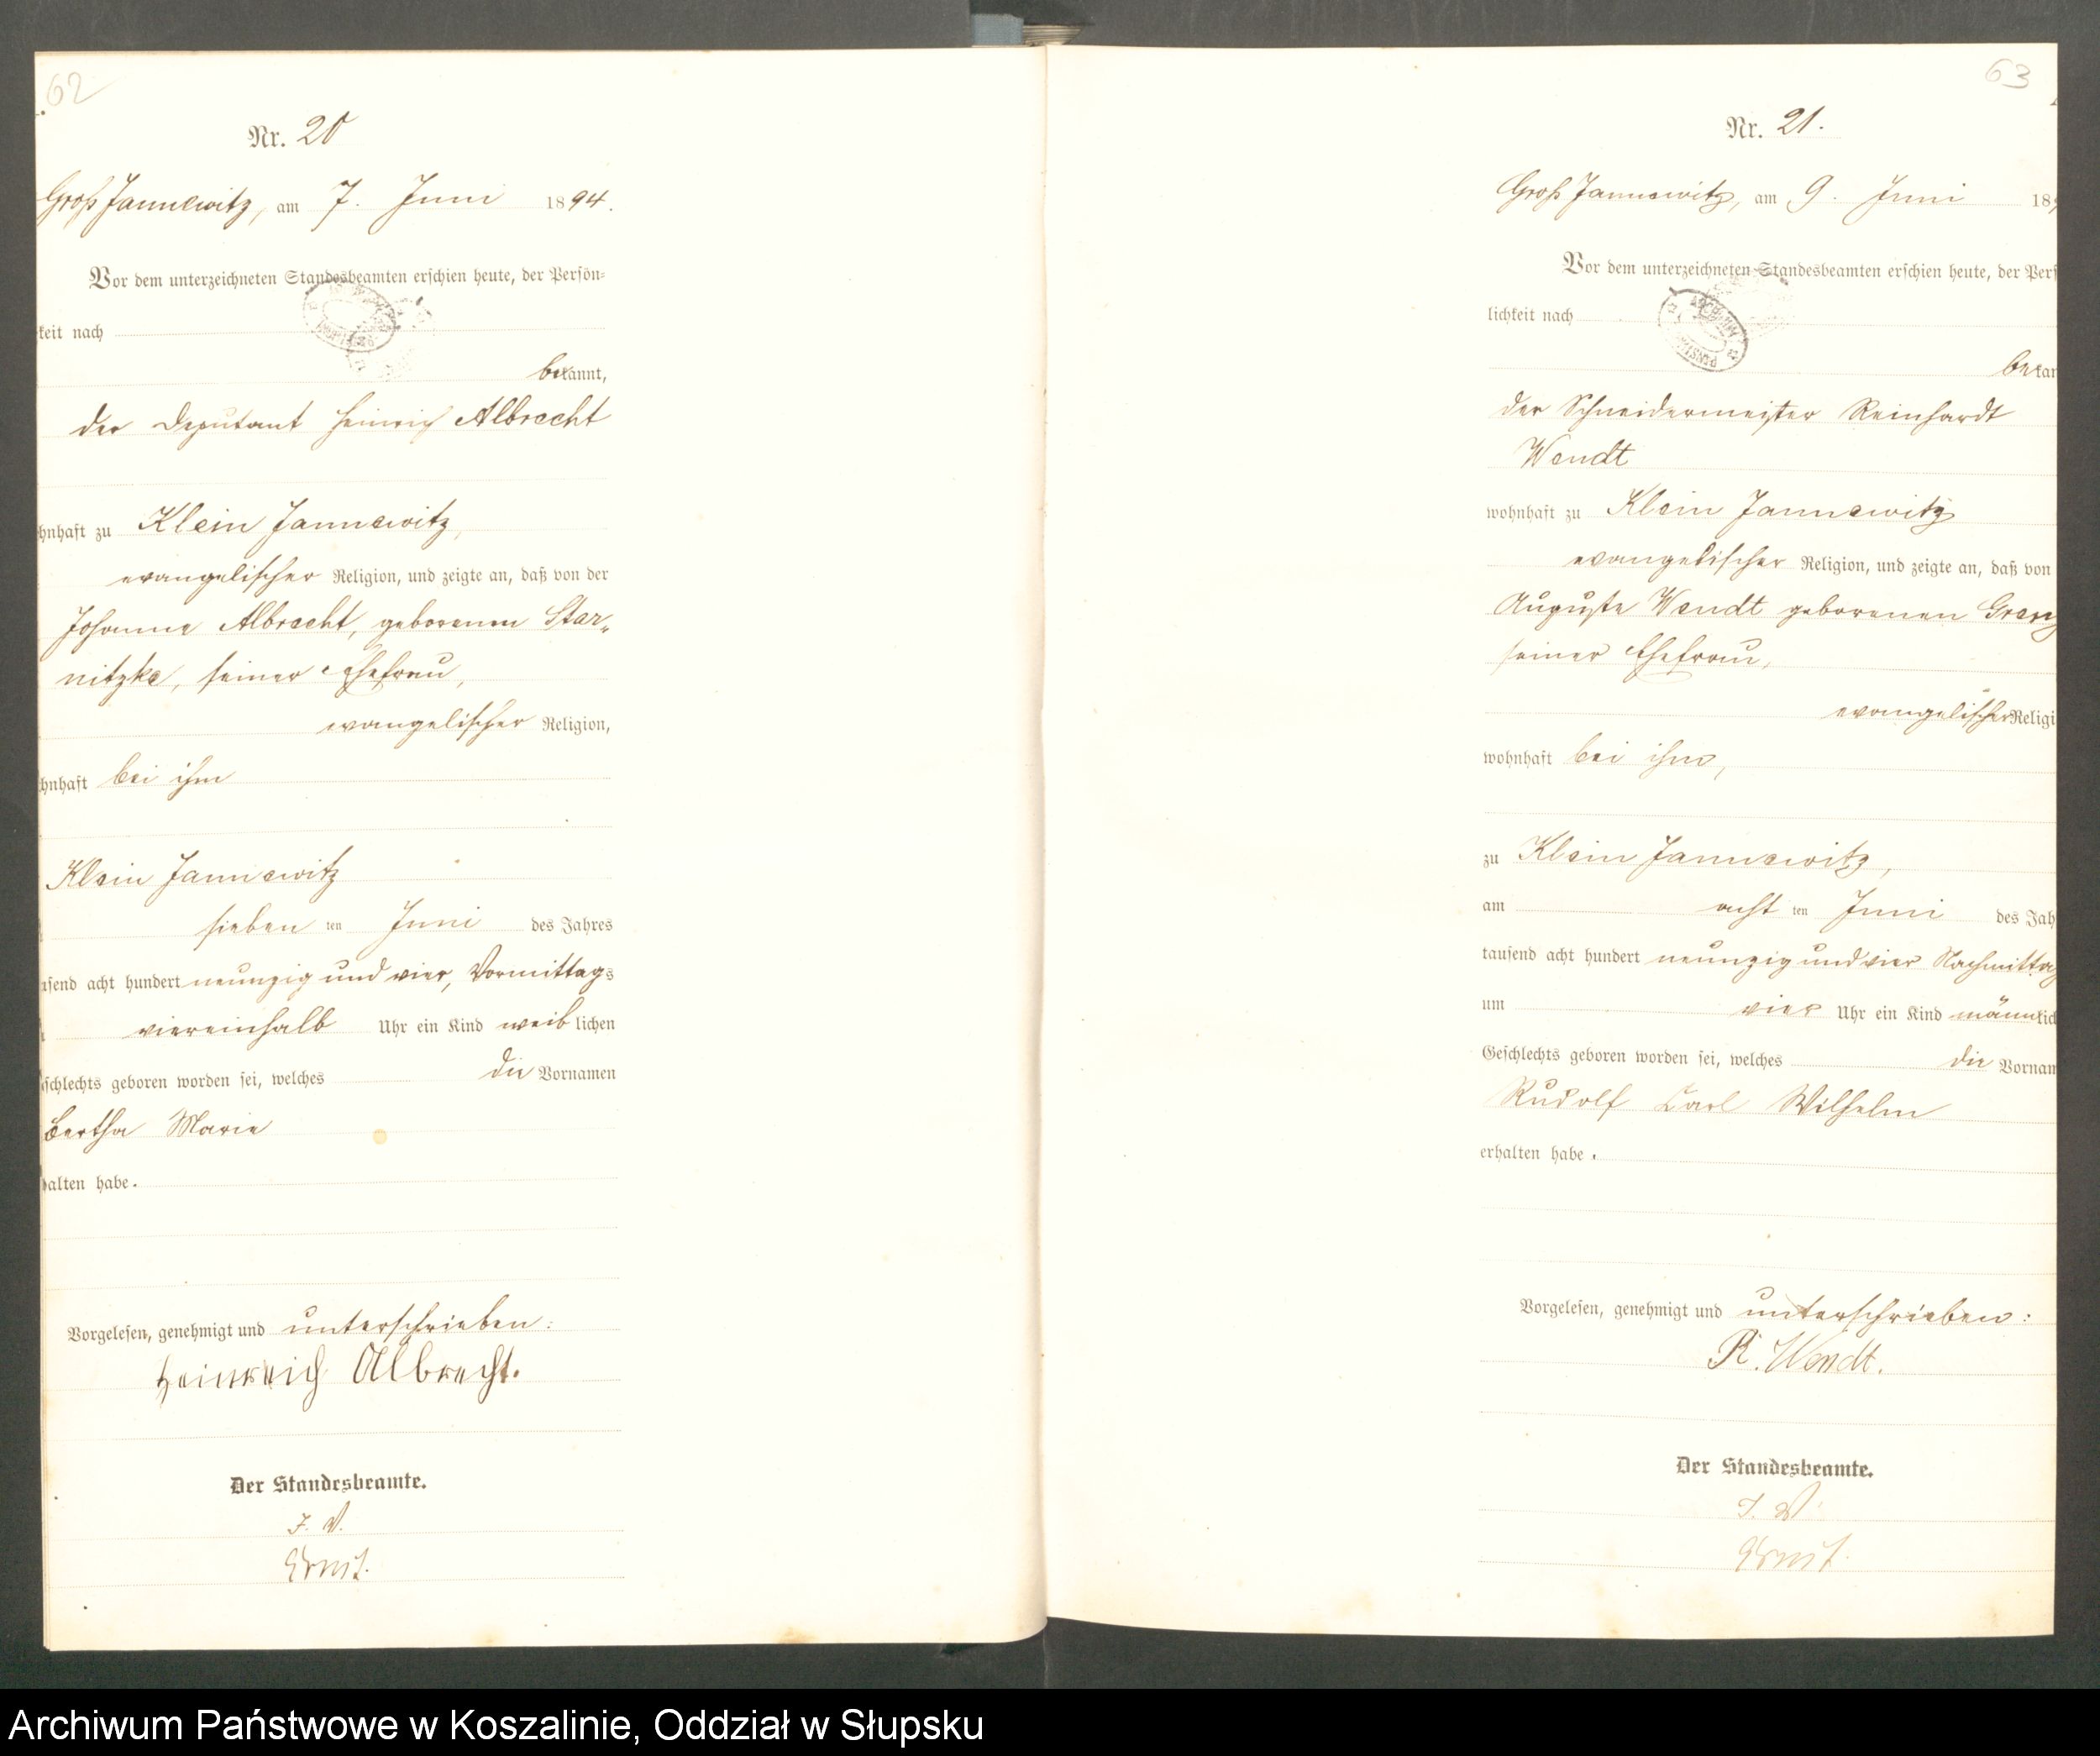 62
Nr. 20
Groß Jannewitz, am 7. Juni 1894.
Vor dem unterzeichneten Standesbeamten erschien heute, der Persön-
keit nach
bekannt,
der Deputant Heinrich Albrecht
hnhaft zu Klein Jannewitz,
evangelischer Religion, und zeigte an, daß von der
Johanne Albrecht, geborenen Star-
nitzke, seiner Ehefrau,
evangelischer Religion,
hnhaft bei ihm
Klein Jannewitz
sieben ten Juni des Jahres
usend acht hundert neunzig und vier, Vormittags
viereinhalb Uhr ein Kind weiblichen
schlechts geboren worden sei, welches die Vornamen
Bertha Marie
alten habe.
Vorgelesen, genehmigt und unterschrieben:
Heinreich Albrecht.
Der Standesbeamte.
I. V.
Ernst.
63
Nr. 21.
Groß Jannewitz, am 9. Juni 189
Vor dem unterzeichneten Standesbeamten erschien heute, der Pers
lichkeit nach
bekan
der Schneidermeister Reinhardt
Wendt
wohnhaft zu Klein Jannewitz
evangelischer Religion, und zeigte an, daß von
Auguste Wendt geborenen
seiner Ehefrau,
evangelischer Religi
wohnhaft bei ihm,
zu Klein Jannewitz,
am acht ten Juni des Jah
tausend acht hundert neunzig und vier Nachmittag
um vier Uhr ein Kind männlich
Geschlechts geboren worden sei, welches die Vornam
Rudolf Carl Wilhelm
erhalten habe.
Vorgelesen, genehmigt und unterschrieben:
R. Wendt.
Der Standesbeamte.
I. V.
Ernst.
Archiwum Państwowe w Koszalinie, Oddział w Słupsku